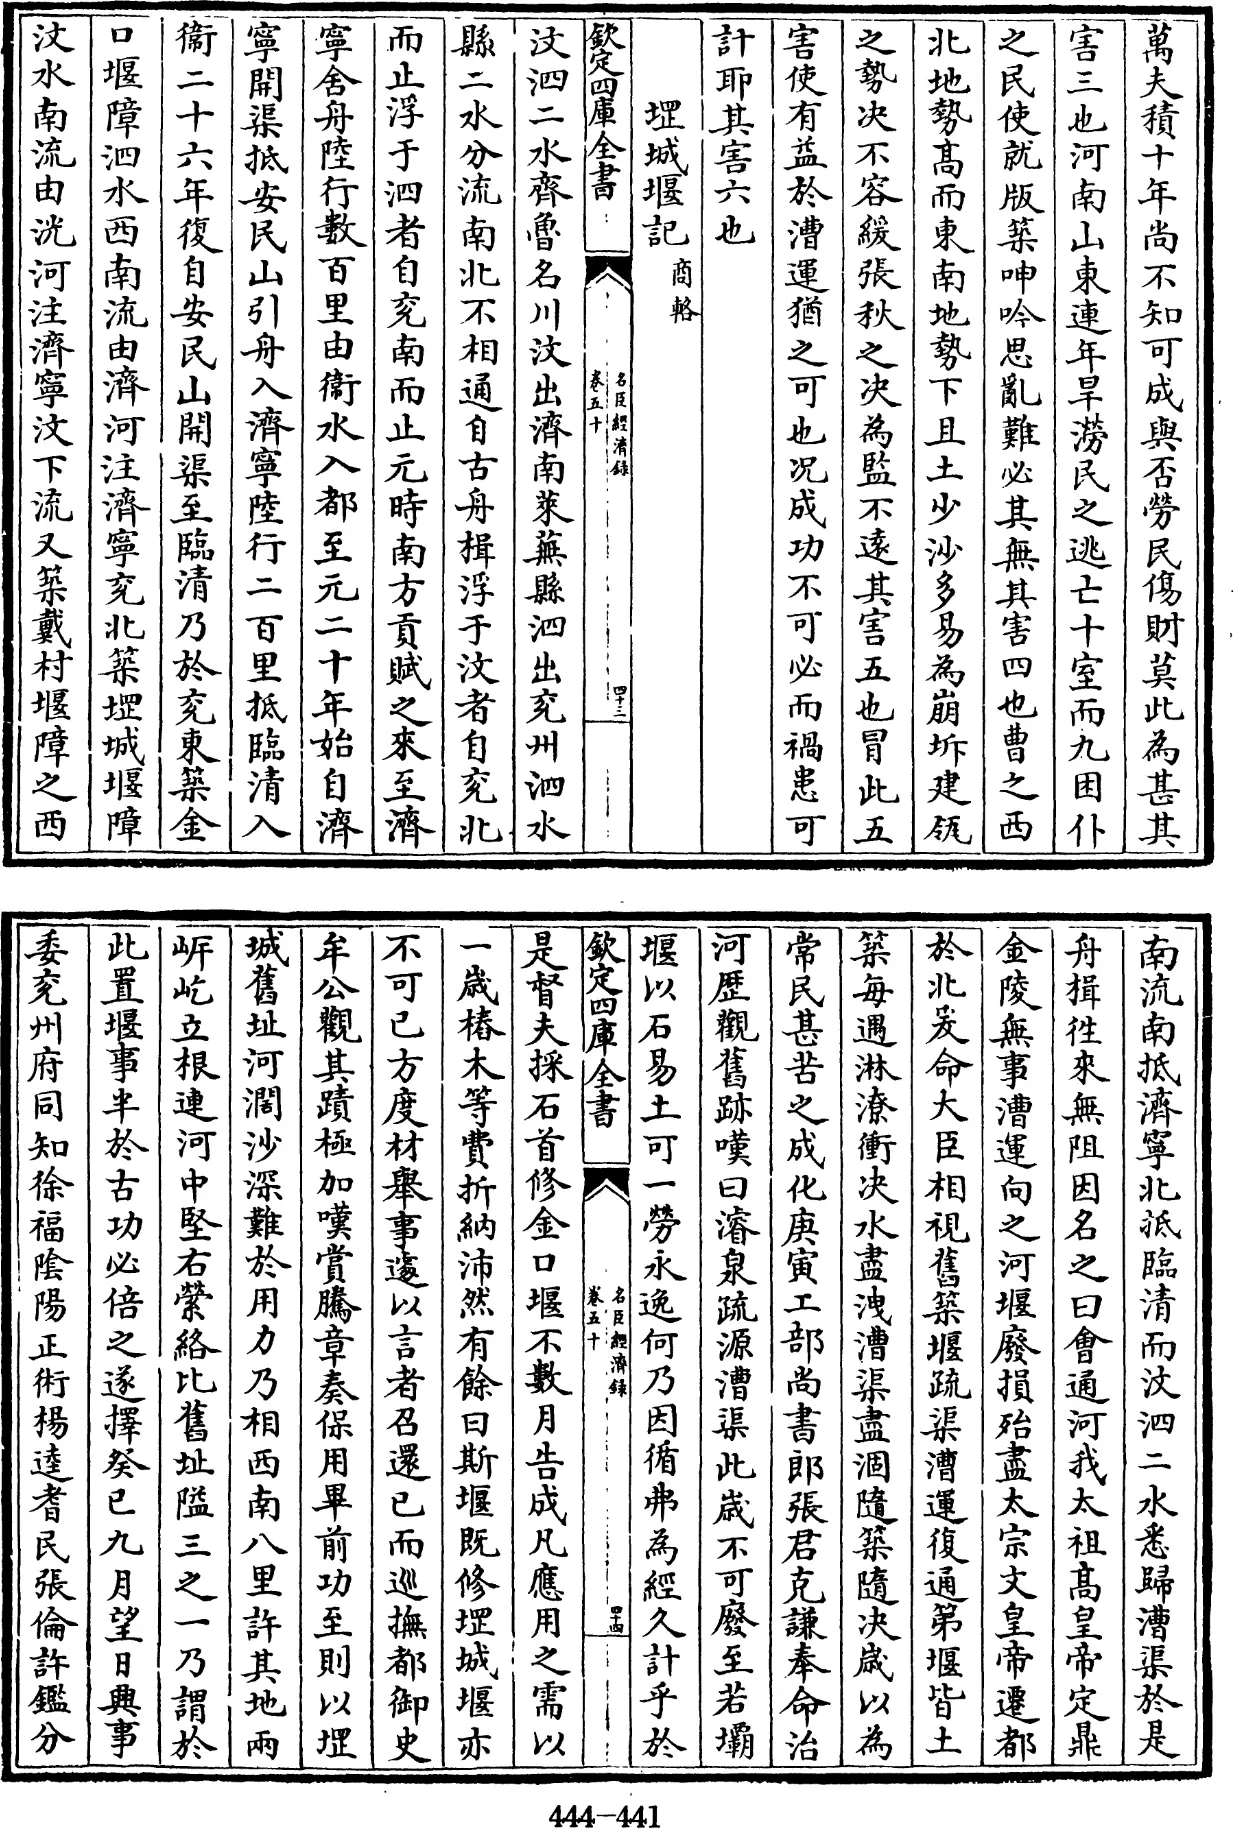 萬夫積十年尚不知可成與否勞民傷財莫此為甚其
害三也河南山東連年旱澇民之逃亡十室而九困仆
之民使就版築呻吟思亂難必其無其害四也曹之西
北地勢高而東南地勢下且土少沙多易為崩坼建瓴
之勢決不容緩張秋之決為監不遠其害五也冒此五
害使有益於漕運猶之可也況成功不可必而禍患可
計耶其害六也
堽城堰記 商輅
欽定四庫全書 名臣經濟錄 卷五十 四十三
汶泗二水齊魯名川汶出濟南萊蕪縣泗出兖州泗水
縣二水分流南北不相通自古舟楫浮于汶者自兖北
而止浮于泗者自兖南而止元時南方貢賦之來至濟
寧舍舟陸行數百里由衞水入都至元二十年始自濟
寧開渠抵安民山引舟入濟寧陸行二百里抵臨清入
衞二十六年復自安民山開渠至臨清乃於兖東築金
口堰障泗水西南流由濟河注濟寧兖北築堽城堰障
汶水南流由洸河注濟寧汶下流又築戴村堰障之西
南流南抵濟寧北抵臨清而汶泗二水悉歸漕渠於是
舟楫徃來無阻因名之曰會通河我太祖高皇帝定鼎
金陵無事漕運向之河堰廢損殆盡太宗文皇帝遷都
於北爰命大臣相視舊築堰疏渠漕運復通第堰皆土
築每遇淋潦衝決水盡洩漕渠盡涸隨築隨決歲以為
常民甚苦之成化庚寅工部尚書郎張君克謙奉命治
河歷觀舊跡嘆曰濬泉疏源漕渠此歲不可廢至若壩
堰以石易土可一勞永逸何乃因循弗為經久計乎於
欽定四庫全書 名臣經濟錄 卷五十 四十四
是督夫採石首修金口堰不數月告成凡應用之需以
一歲樁木等費折納沛然有餘曰斯堰既修堽城堰亦
不可已方度材舉事遽以言者召還已而巡撫都御史
牟公觀其蹟極加嘆賞騰章奏保用畢前功至則以堽
城舊址河濶沙深難於用力乃相西南八里許其地兩
岍屹立根連河中堅右縈絡比舊址隘三之一乃謂於
此置堰事半於古功必倍之遂擇癸已九月望日興事
委兖州府同知徐福隂陽正術楊逵耆民張倫許鑑分
444-441